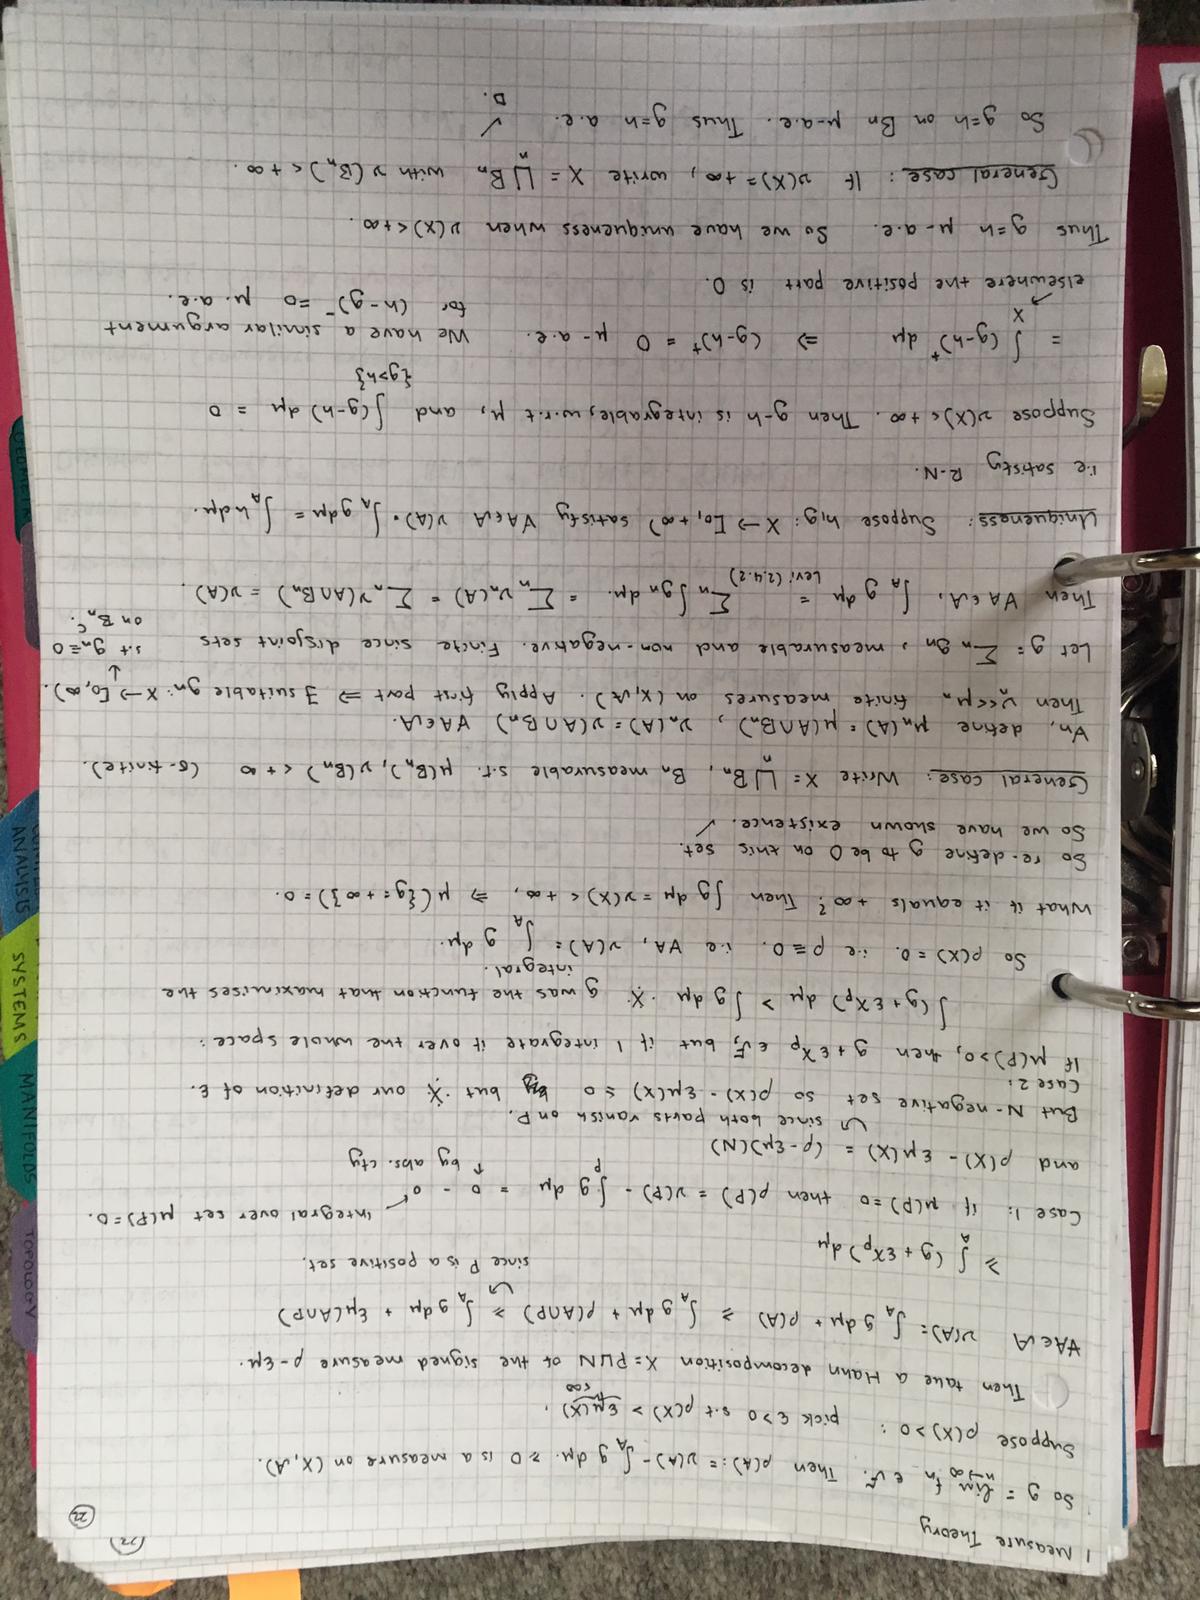 1 Measure Theory
22
22
So g = lim n→∞ fn ∈ F. Then ρ(A) := ν(A) - ∫_A g dμ ≥ 0 is a measure on (X, A).
Suppose ρ(X) > 0 : pick ε>0 s.t ρ(X) > εμ(X).
<∞
Then take a Hahn decomposition X = PUN of the signed measure ρ - εμ.
∀A∈A ν(A) = ∫_A g dμ + ρ(A) ≥ ∫_A g dμ + ρ(A∩P) ≥ ∫_A g dμ + εμ(A∩P)
since P is a positive set.
≥ ∫_A (g + εχ_P) dμ
Case 1: if μ(P)=0 then ρ(P) = ν(P) - ∫_P g dμ = 0 - 0
integral over set μ(P)=0.
↑ by abs. cty
and ρ(X) - εμ(X) = (ρ-εμ)(N)
since both parts vanish on P.
But N-negative set so ρ(X) - εμ(X) ≤ 0 but ※ our definition of ε.
Case 2:
If μ(P)>0, then g + εχ_P ∈ F, but if I integrate it over the whole space :
∫(g + εχ_P) dμ > ∫ g dμ ※ g was the function that maximises the
integral.
So ρ(X) = 0. i.e ρ ≡ 0. i.e ∀A, ν(A) = ∫_A g dμ.
What if it equals +∞? Then ∫g dμ = ν(X) < +∞, ⇒ μ({g = +∞}) = 0.
So re-define g to be 0 on this set.
So we have shown existence. ✓
General case: Write X = ⊔_n Bn, Bn measurable s.t. μ(Bn), ν(Bn) < +∞ (σ-finite).
∀n, define μn(A) = μ(A∩Bn), νn(A) = ν(A∩Bn) ∀A∈A.
Then νn<<μn finite measures on (X,A). Apply first part ⇒ ∃ suitable gn: X → [0,∞).
↓
s.t gn=0
on Bn^c.
Let g = Σn gn, measurable and non-negative. Finite since disjoint sets
Then ∀A∈A, ∫_A g dμ = Σn ∫gn dμ. = Σn νn(A) = Σn ν(A∩Bn) = ν(A).
Levi (2.4.2)
Uniqueness: Suppose h,g: X → [0,+∞) satisfy ∀A∈A ν(A) = ∫_A g dμ = ∫_A h dμ.
i.e satisfy R-N.
Suppose ν(X) < +∞. Then g-h is integrable, w.r.t μ, and ∫_{g>h} (g-h) dμ = 0
= ∫_X (g-h)⁺ dμ ⇒ (g-h)⁺ = 0 μ-a.e. We have a similar argument
for (h-g)⁻ = 0 μ.a.e.
elsewhere the positive part is 0.
Thus g=h μ-a.e. So we have uniqueness when ν(X) < +∞.
General case: If ν(X) = +∞, write X = ⊔_n Bn with ν(Bn) < +∞.
So g=h on Bn μ-a.e. Thus g=h a.e. ✓ □.
TOPOLOGY
MANIFOLDS
SYSTEMS
ANALYSIS